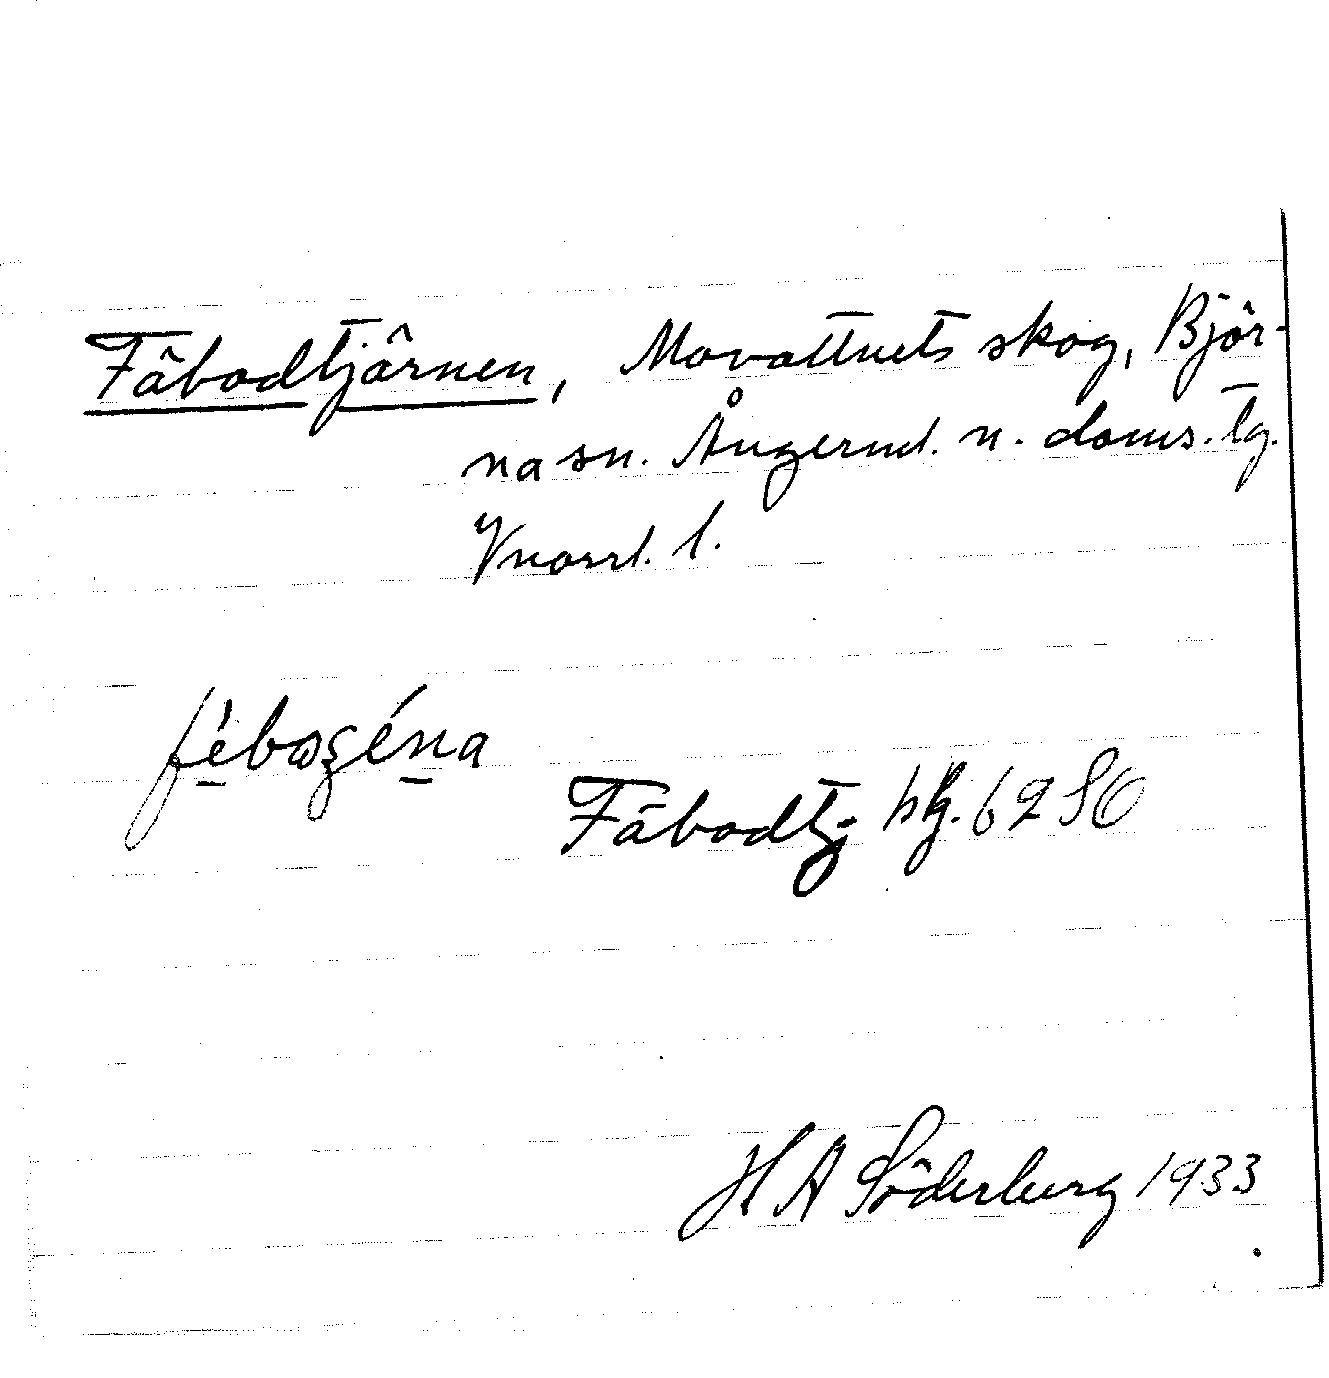 Fäbodtjärnen, Movattnets skog, Björ-
na sn. Ångermd. n. doms. tg.
Vnorrl. l.
Fäbodtj. hfg. 6280
H A Söderberg 1933